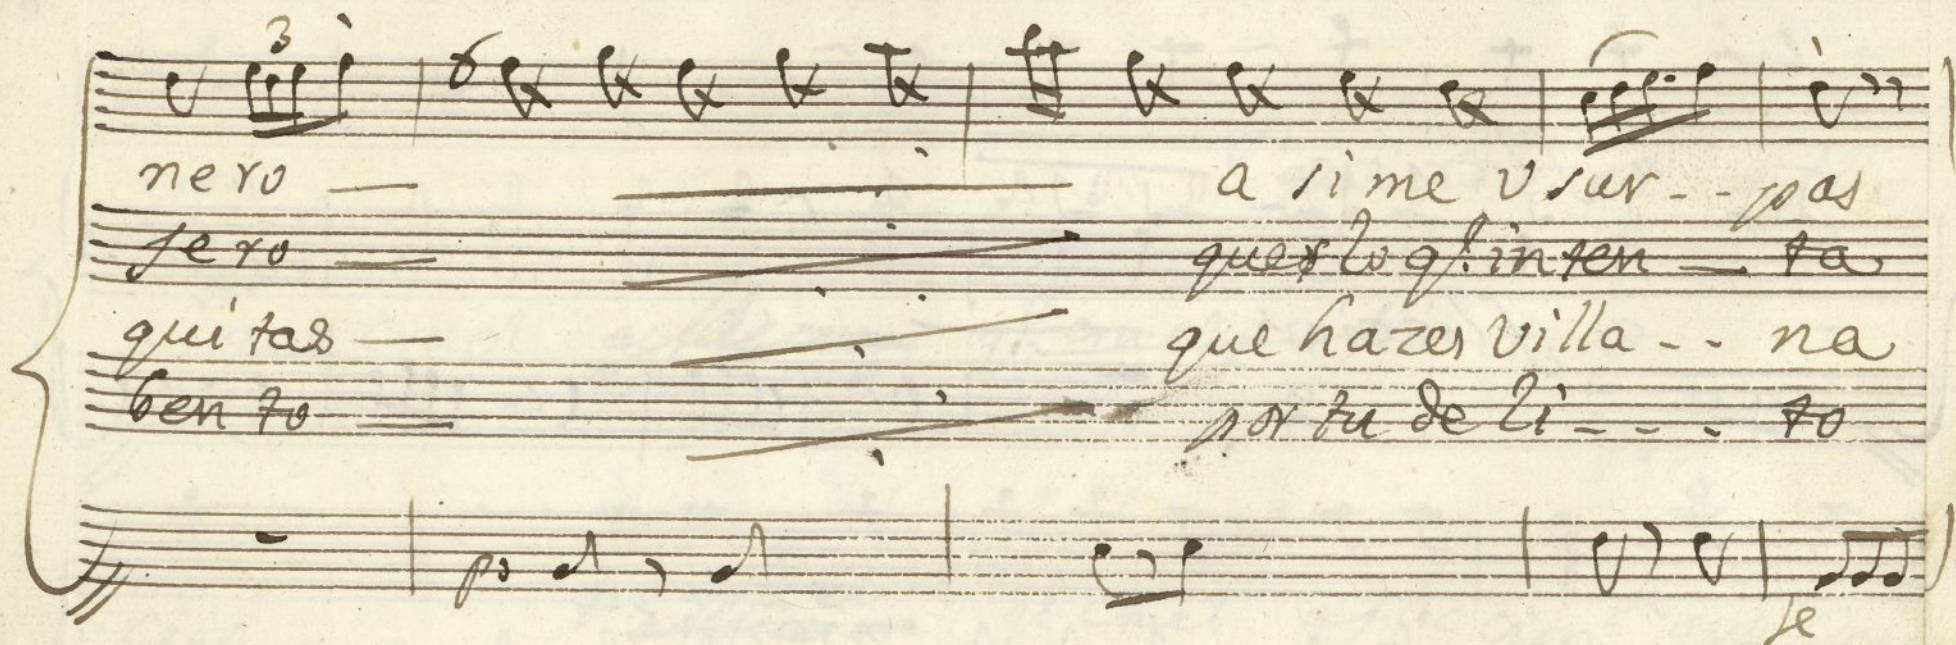 3
nero — a si me usur - - pas
sero — ques lo q.e inten — ta
quitas — que hazes villa - - na
bento — por tu deli - - - to
po
fe